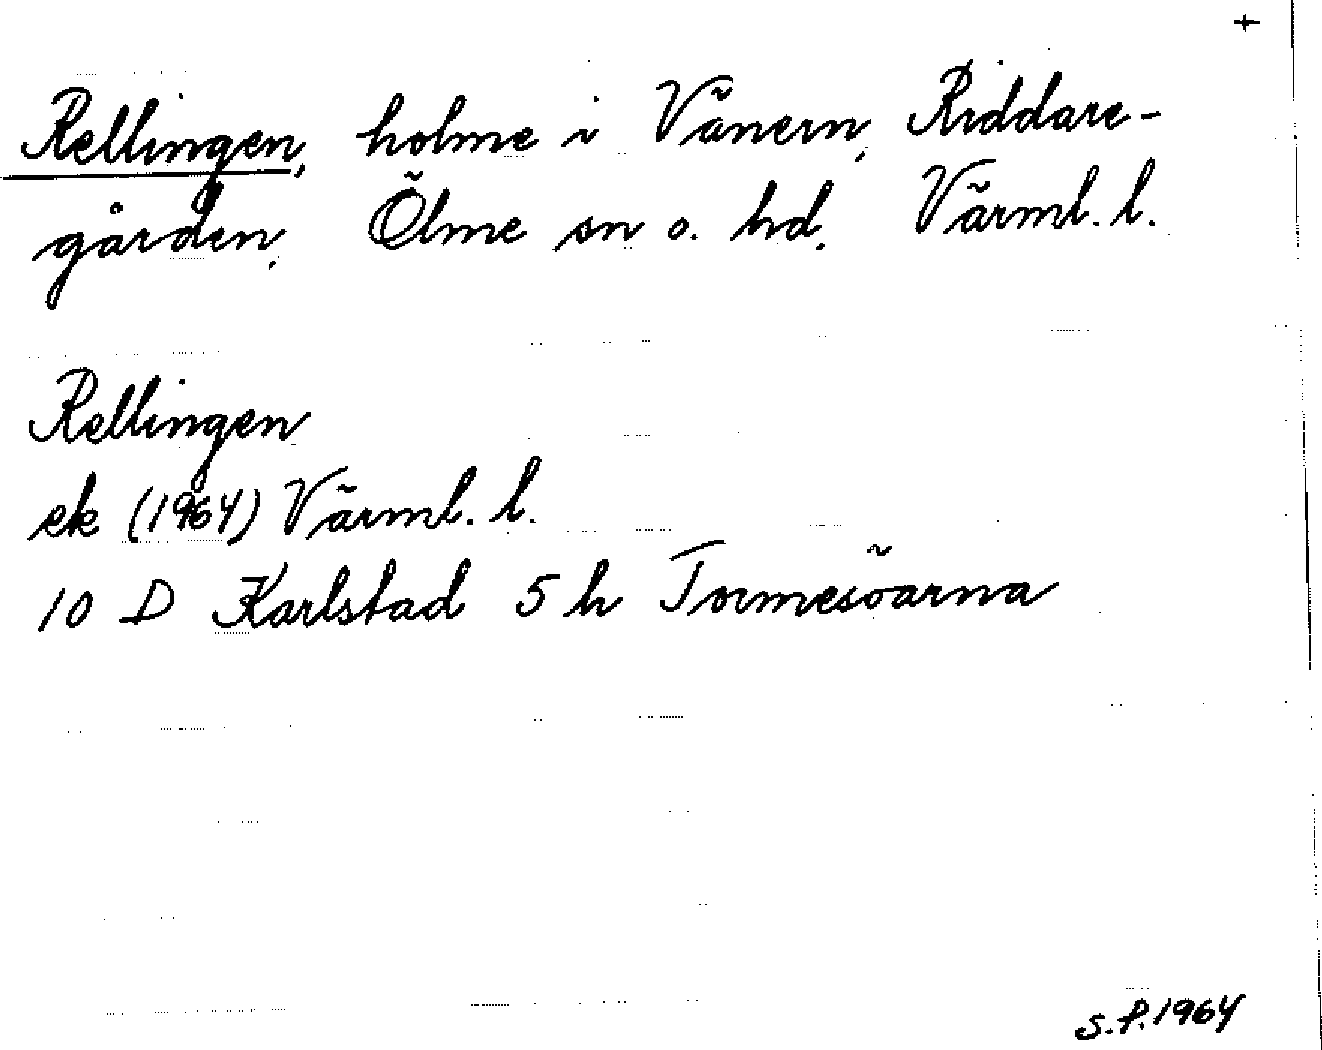 +
Rellingen, holme i Vänern, Riddare-
gården, Ölme sn o. hd, Värml. l.
Rellingen
ek (1964) Värml. l.
10 D Karlstad 5 h Tormesöarna
S.P. 1964